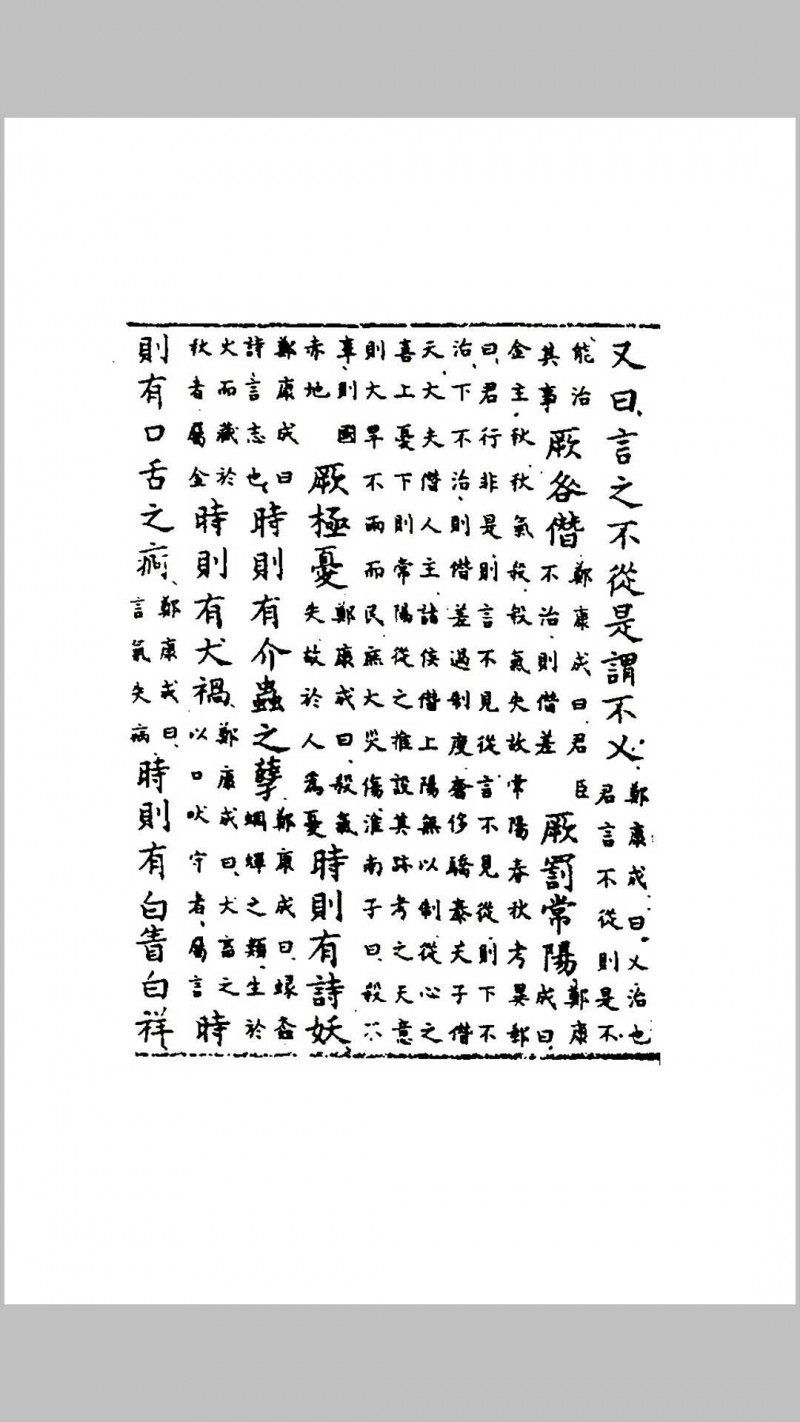 又曰言之不從是謂不乂鄭康成曰乂治也君言不從則是不
能治其事厥咎僭鄭康成曰君臣不治則僭差厥罰常陽鄭康成曰
金主秋秋氣殺殺氣失故常陽春秋考異郵
曰君行非是則言不見從言不見從則下不
治下不治則僭差過制度奢侈驕泰夫子僭
天大夫僭人主諸侯僭上陽無以制從心之
喜上憂下則常陽從之推設其跡考之天意
則大旱不雨而民庶大災傷淮南子曰殺不
辜則國赤地厥極憂鄭康成曰殺氣失故於人為憂時則有詩妖
鄭康成曰詩言志也時則有介蟲之孽鄭康成曰蝝螽蜩蟬之類生於
火而藏於秋者屬金時則有犬禍鄭康成曰犬畜之以口吠守者屬言時
則有口舌之痾鄭康成曰言氣失病時則有白眚白祥